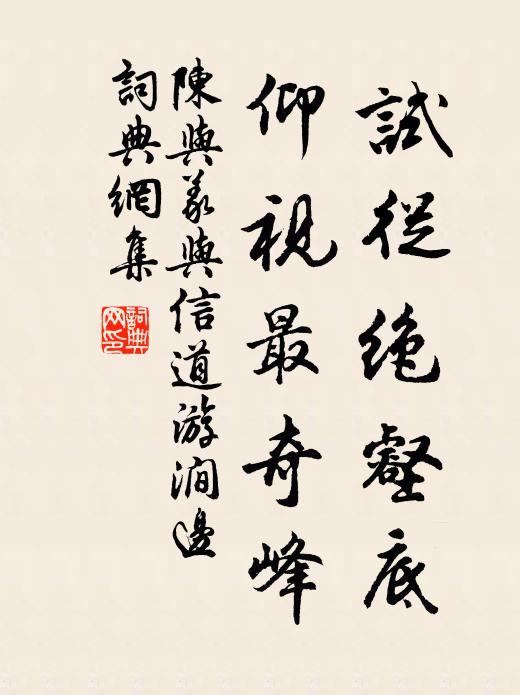 試從絶壑底
仰視最奇峰
陳與義與信道游澗邊
詞典網集
詞典网印